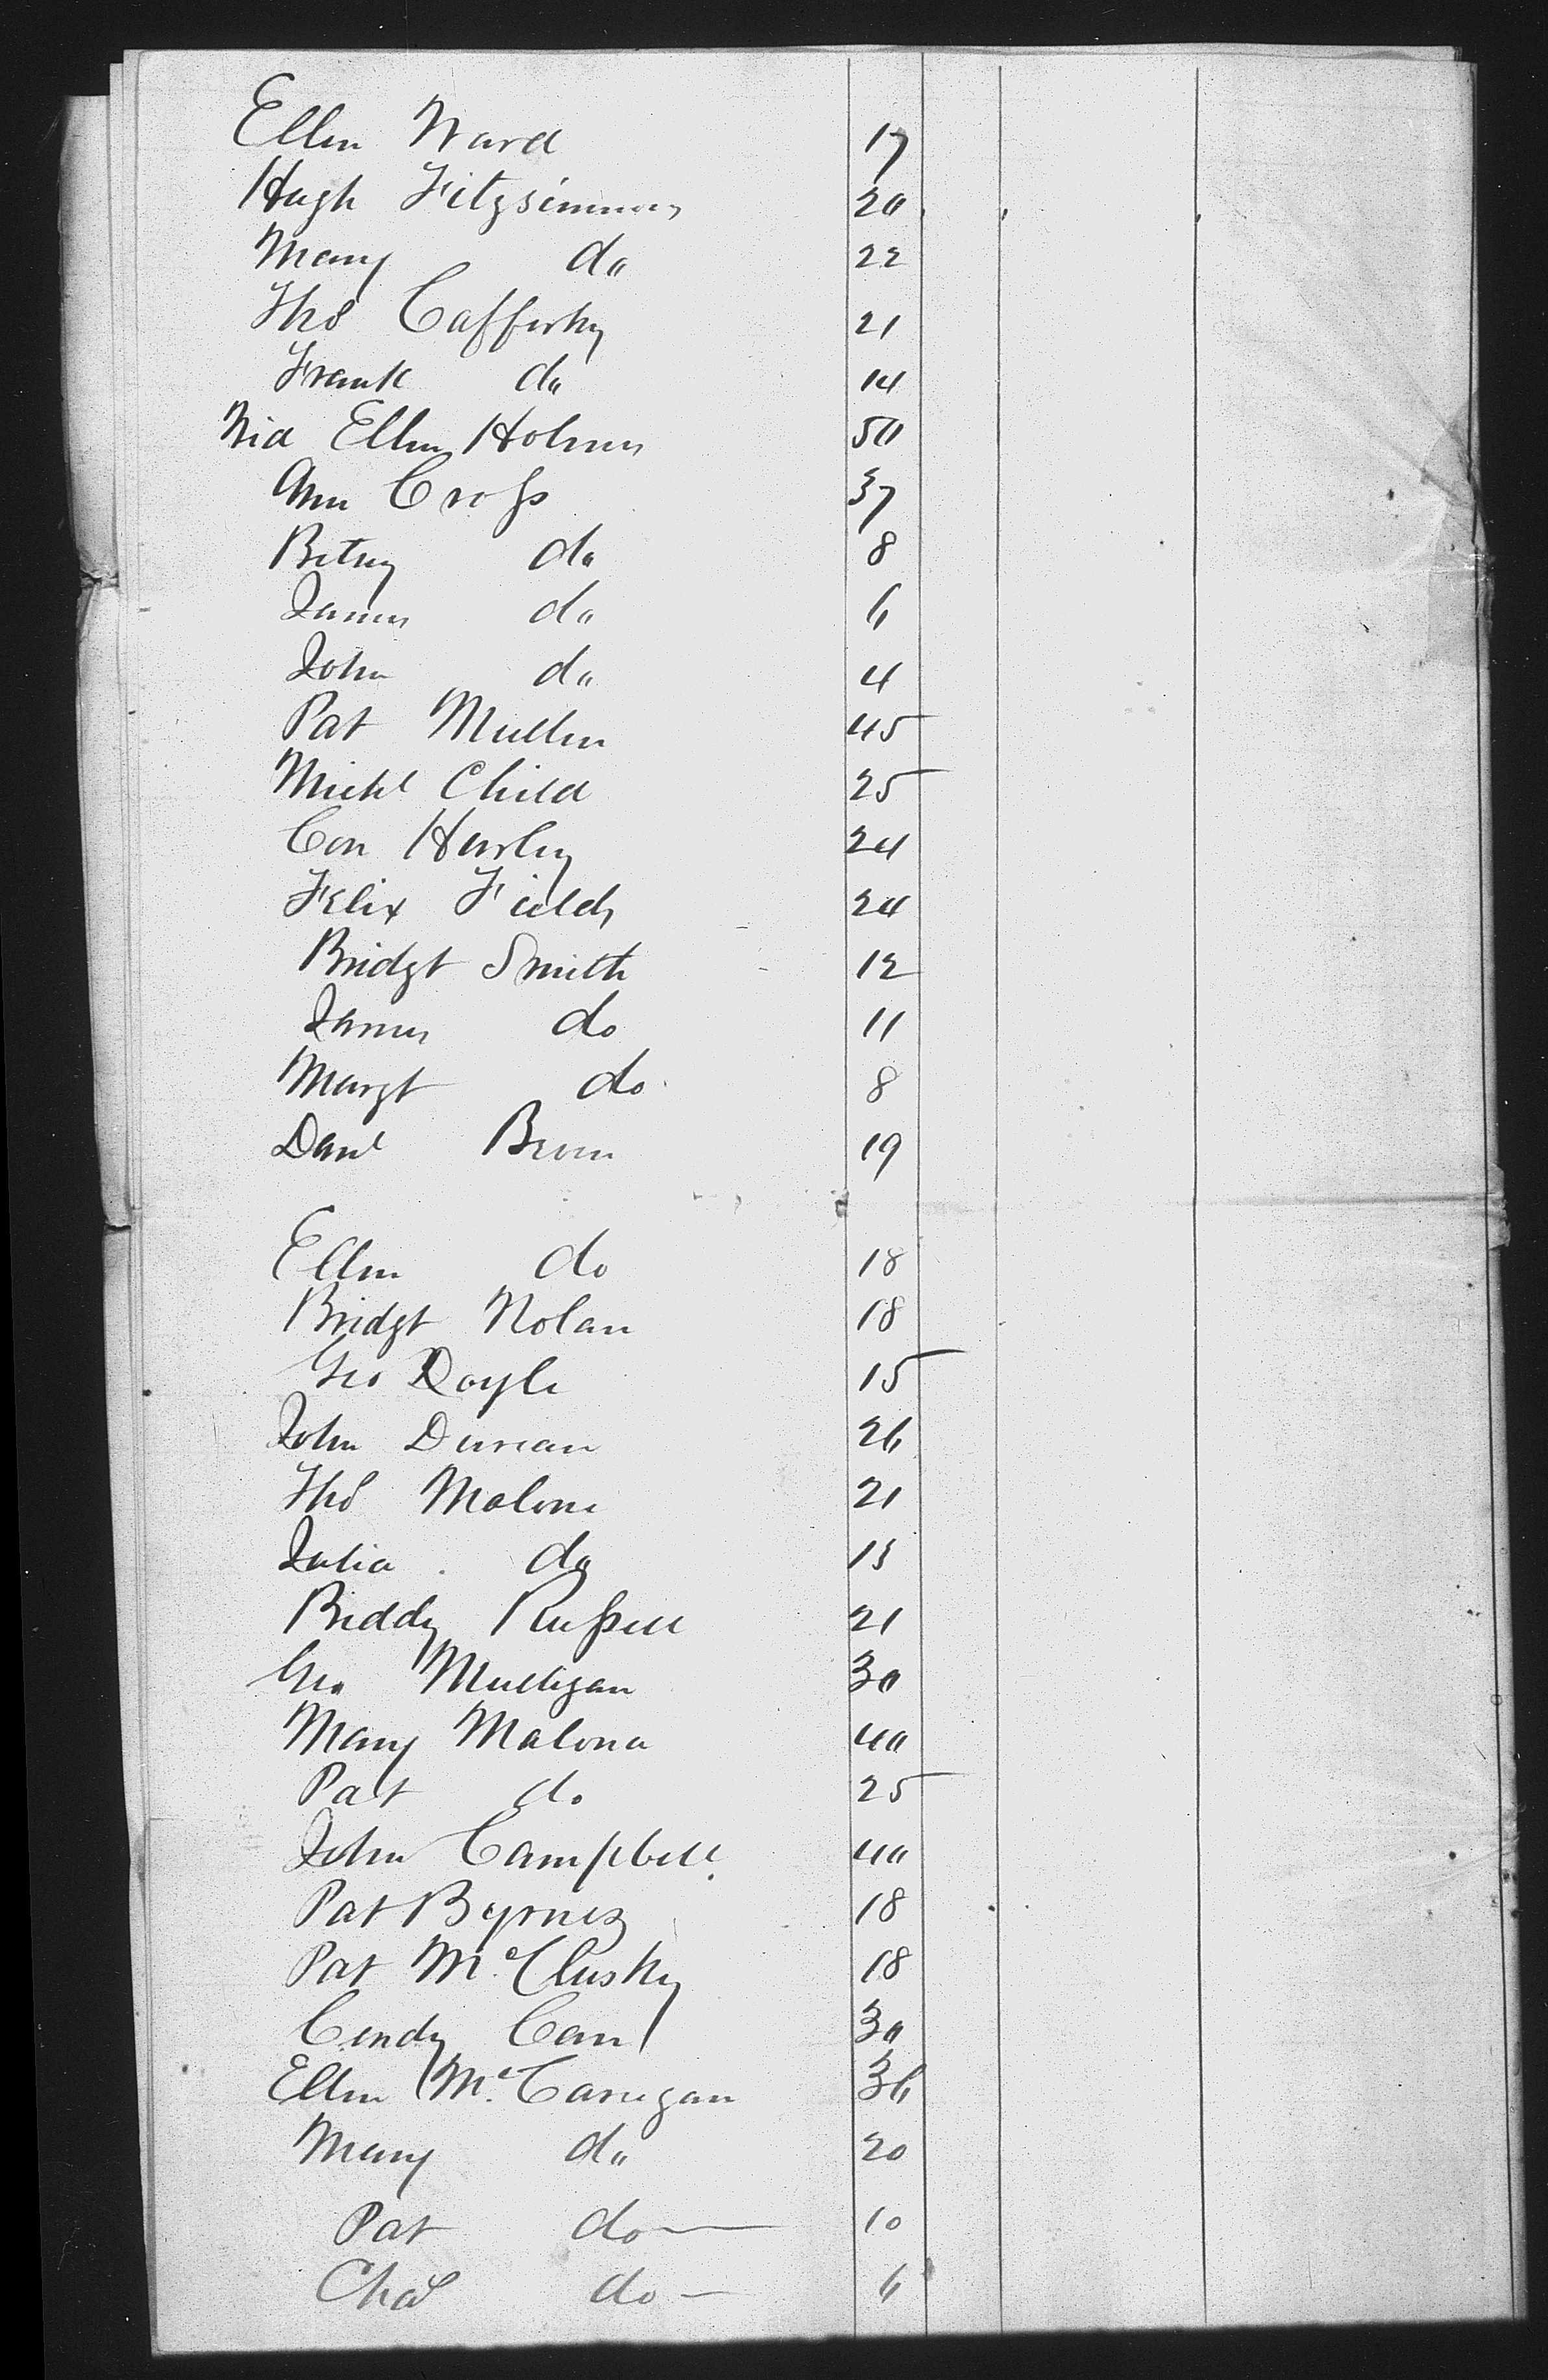 Ellen Ward 17
Hugh Fitzsimmons 20
Mary do 22
Thos Cafferky 21
Frank do 14
Wid Ellen Holmes 50
Ann Cross 37
Betsy do 8
James do 6
John do 4
Pat Mullen 45
Michl Child 25
Con Hurley 24
Felix Fields 24
Bridgt Smith 12
James do 11
Margt do 8
Danl 19
Ellen do 18
Bridgt Nolan 18
Geo Doyle 15
John 26
Thos Malone 21
Julia do 13
Biddy Russell 21
Geo Mulligan 30
Mary Malona 40
Pat do 25
John Campbell 40
Pat Byrnes 18
Pat McClusky 18
30
Ellen McCarrigan 36
Mary do 20
Pat do 10
Chas do 6